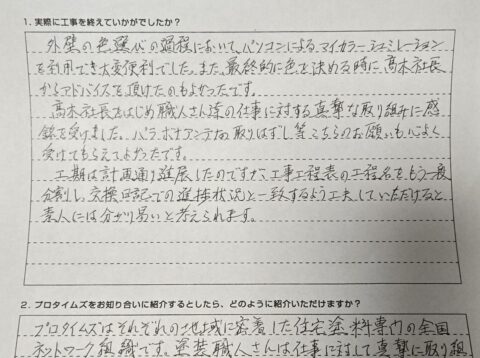 1. 実際に工事を終えていかがでしたか？
外壁の色選びの過程において、パソコンによるマイカラーシュミレーション
を利用でき大変便利でした。また、最終的に色を決める時に、髙木社長
からアドバイスを頂けたのもよかったです。
髙木社長をはじめ職人さん達の仕事に対する真摯な取り組みに感
銘を受けました。パラボナアンテナの取りはずし等、こちらのお願いも心よく
受けてもらえてよかったです。
工期は計画通り進展したのですが、工事工程表の工程名をもう一度
分割し、交換日記での進捗状況と一致するよう工夫していただけると
素人には分かり易いと考えられます。
2. プロタイムズをお知り合いに紹介するとしたら、どのように紹介いただけますか？
プロタイムズはそれぞれの地域に密着した住宅塗料専門の全国
ネットワーク組織です。塗装職人さんは仕事に対して真摯に取り組